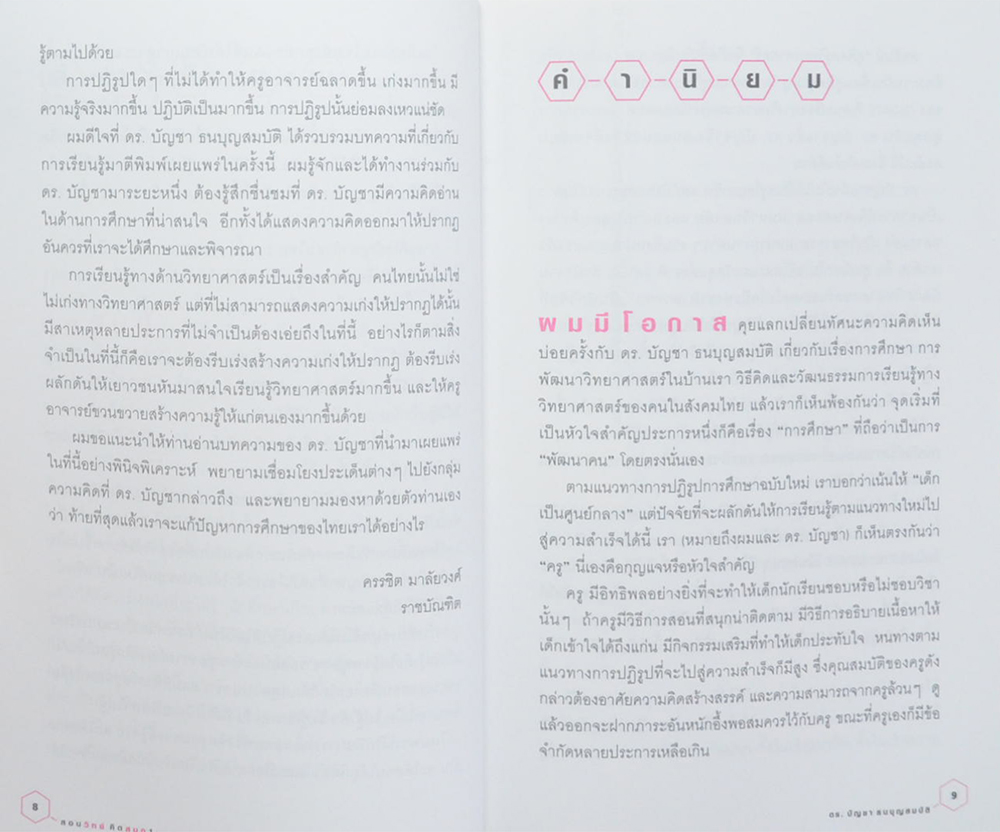 รู้ตามไปด้วย
การปฏิรูปใดๆ ที่ไม่ได้ทำให้ครูอาจารย์ฉลาดขึ้น เก่งมากขึ้น มี
ความรู้จริงมากขึ้น ปฏิบัติเป็นมากขึ้น การปฏิรูปนั้นย่อมลงเหวแน่ชัด
ผมดีใจที่ ดร. บัญชา ธนบุญสมบัติ ได้รวบรวมบทความที่เกี่ยวกับ
การเรียนรู้มาตีพิมพ์เผยแพร่ในครั้งนี้ ผมรู้จักและได้ทำงานร่วมกับ
ดร. บัญชามาระยะหนึ่ง ต้องรู้สึกชื่นชมที่ ดร. บัญชามีความคิดอ่าน
ในด้านการศึกษาที่น่าสนใจ อีกทั้งได้แสดงความคิดออกมาให้ปรากฏ
อันควรที่เราจะได้ศึกษาและพิจารณา
การเรียนรู้ทางด้านวิทยาศาสตร์เป็นเรื่องสำคัญ คนไทยนั้นไม่ใช่
ไม่เก่งทางวิทยาศาสตร์ แต่ที่ไม่สามารถแสดงความเก่งให้ปรากฏได้นั้น
มีสาเหตุหลายประการที่ไม่จำเป็นต้องเอ่ยถึงในที่นี้ อย่างไรก็ตามสิ่ง
จำเป็นในที่นี้ก็คือเราจะต้องรีบเร่งสร้างความเก่งให้ปรากฏ ต้องรีบเร่ง
ผลักดันให้เยาวชนหันมาสนใจเรียนรู้วิทยาศาสตร์มากขึ้น และให้ครู
อาจารย์ขวนขวายสร้างความรู้ให้แก่ตนเองมากขึ้นด้วย
ผมขอแนะนำให้ท่านอ่านบทความของ ดร. บัญชาที่นำมาเผยแพร่
ในที่นี้อย่างพินิจพิเคราะห์ พยายามเชื่อมโยงประเด็นต่างๆ ไปยังกลุ่ม
ความคิดที่ ดร. บัญชากล่าวถึง และพยายามมองหาด้วยตัวท่านเอง
ว่า ท้ายที่สุดแล้วเราจะแก้ปัญหาการศึกษาของไทยเราได้อย่างไร
ครรชิต มาลัยวงศ์
ราชบัณฑิต
8
สอนวิทย์ คิดสนุก
คำนิยม
ผมมีโอกาส คุยแลกเปลี่ยนทัศนะความคิดเห็น
บ่อยครั้งกับ ดร. บัญชา ธนบุญสมบัติ เกี่ยวกับเรื่องการศึกษา การ
พัฒนาวิทยาศาสตร์ในบ้านเรา วิธีคิดและวัฒนธรรมการเรียนรู้ทาง
วิทยาศาสตร์ของคนในสังคมไทย แล้วเราก็เห็นพ้องกันว่า จุดเริ่มที่
เป็นหัวใจสำคัญประการหนึ่งก็คือเรื่อง “การศึกษา” ที่ถือว่าเป็นการ
“พัฒนาคน” โดยตรงนั่นเอง
ตามแนวทางการปฏิรูปการศึกษาฉบับใหม่ เราบอกว่าเน้นให้ “เด็ก
เป็นศูนย์กลาง” แต่ปัจจัยที่จะผลักดันให้การเรียนรู้ตามแนวทางใหม่ไป
สู่ความสำเร็จได้นี้ เรา (หมายถึงผมและ ดร. บัญชา) ก็เห็นตรงกันว่า
“ครู” นี่เองคือกุญแจหรือหัวใจสำคัญ
ครู มีอิทธิพลอย่างยิ่งที่จะทำให้เด็กนักเรียนชอบหรือไม่ชอบวิชา
นั้นๆ ถ้าครูมีวิธีการสอนที่สนุกน่าติดตาม มีวิธีการอธิบายเนื้อหาให้
เด็กเข้าใจได้ถึงแก่น มีกิจกรรมเสริมที่ทำให้เด็กประทับใจ หนทางตาม
แนวทางการปฏิรูปที่จะไปสู่ความสำเร็จก็มีสูง ซึ่งคุณสมบัติของครูดัง
กล่าวต้องอาศัยความคิดสร้างสรรค์ และความสามารถจากครูล้วนๆ ดู
แล้วออกจะฝากภาระอันหนักอึ้งพอสมควรไว้กับครู ขณะที่ครูเองก็มีข้อ
จำกัดหลายประการเหลือเกิน
ดร. บัญชา ธนบุญสมบัติ
9